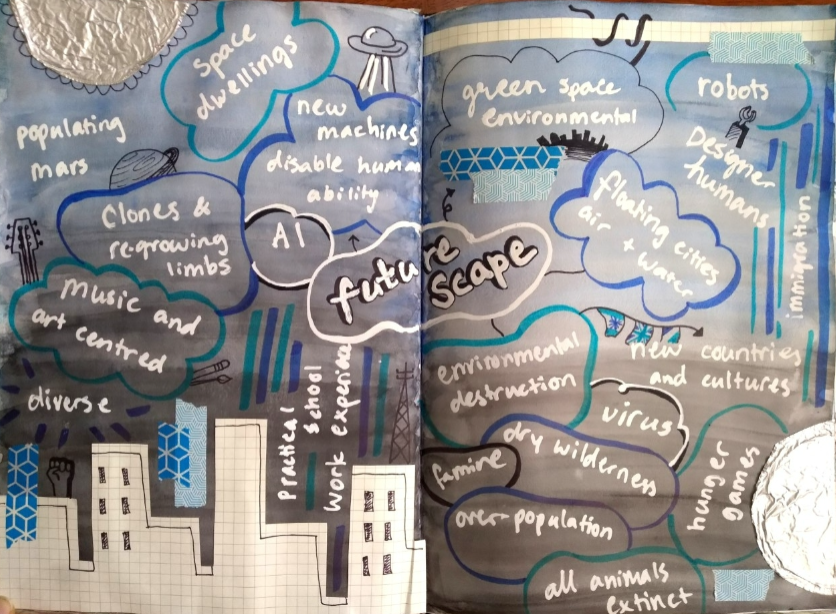 space
dwellings
new
machines
disable human
ability
populating
mars
clones &
regrowing
limbs
AI
future
scape
music and
art centred
diverse
practical
school
work experience
green space
environmental
robots
Designer
humans
floating cities
air + water
immigration
new countries
and cultures
environmental
destruction
virus
dry wilderness
famine
over-population
hunger
games
all animals
extinct